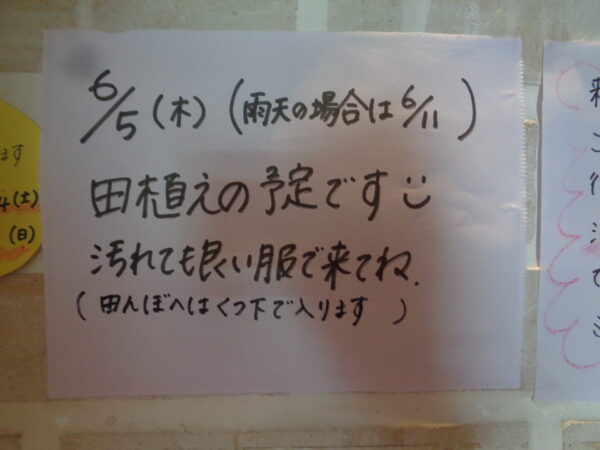 6/5(木)(雨天の場合は6/11)
田植えの予定です
汚れても良い服で来てね.
(田んぼへはくつ下で入ります)
ます
4(土)
(日)